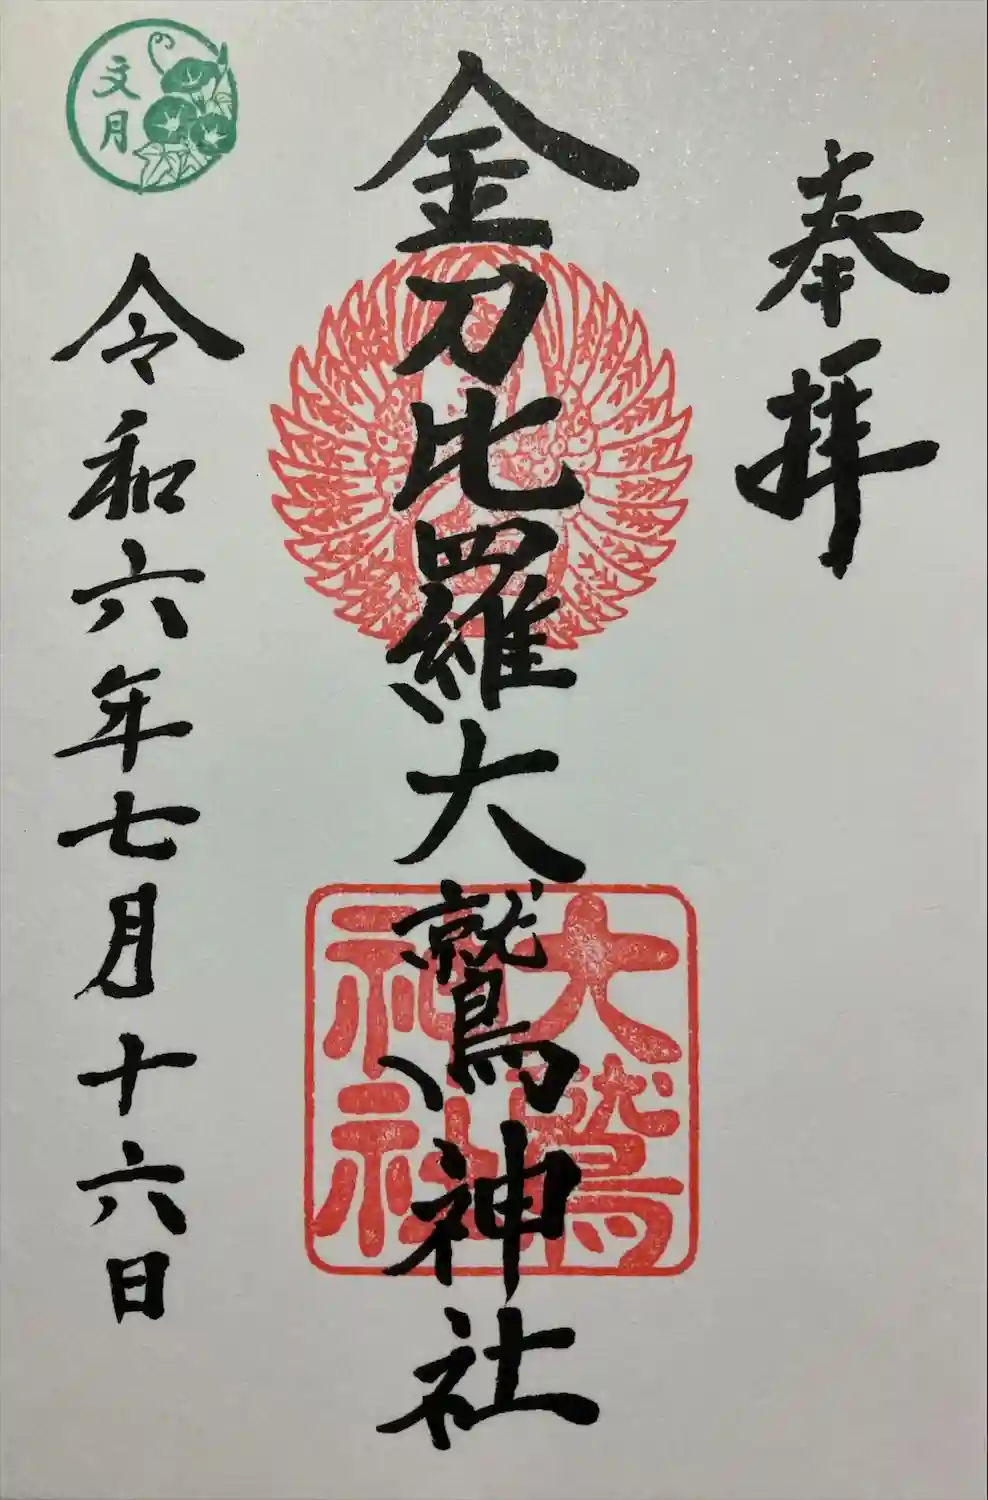 奉拝
金刀比羅大鷲神社
大鷲
神社
文月
令和六年七月十六日